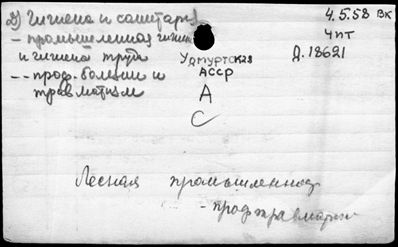 2) Гигиена и санитария
- промышленная гигиена
и гигиена труда
-- проф. болезни и
травматизм
Удмуртская
АССР
А
С
4.5.58 вк
Чпт
Д.18621
Лесная промышленность
- профтравматизм